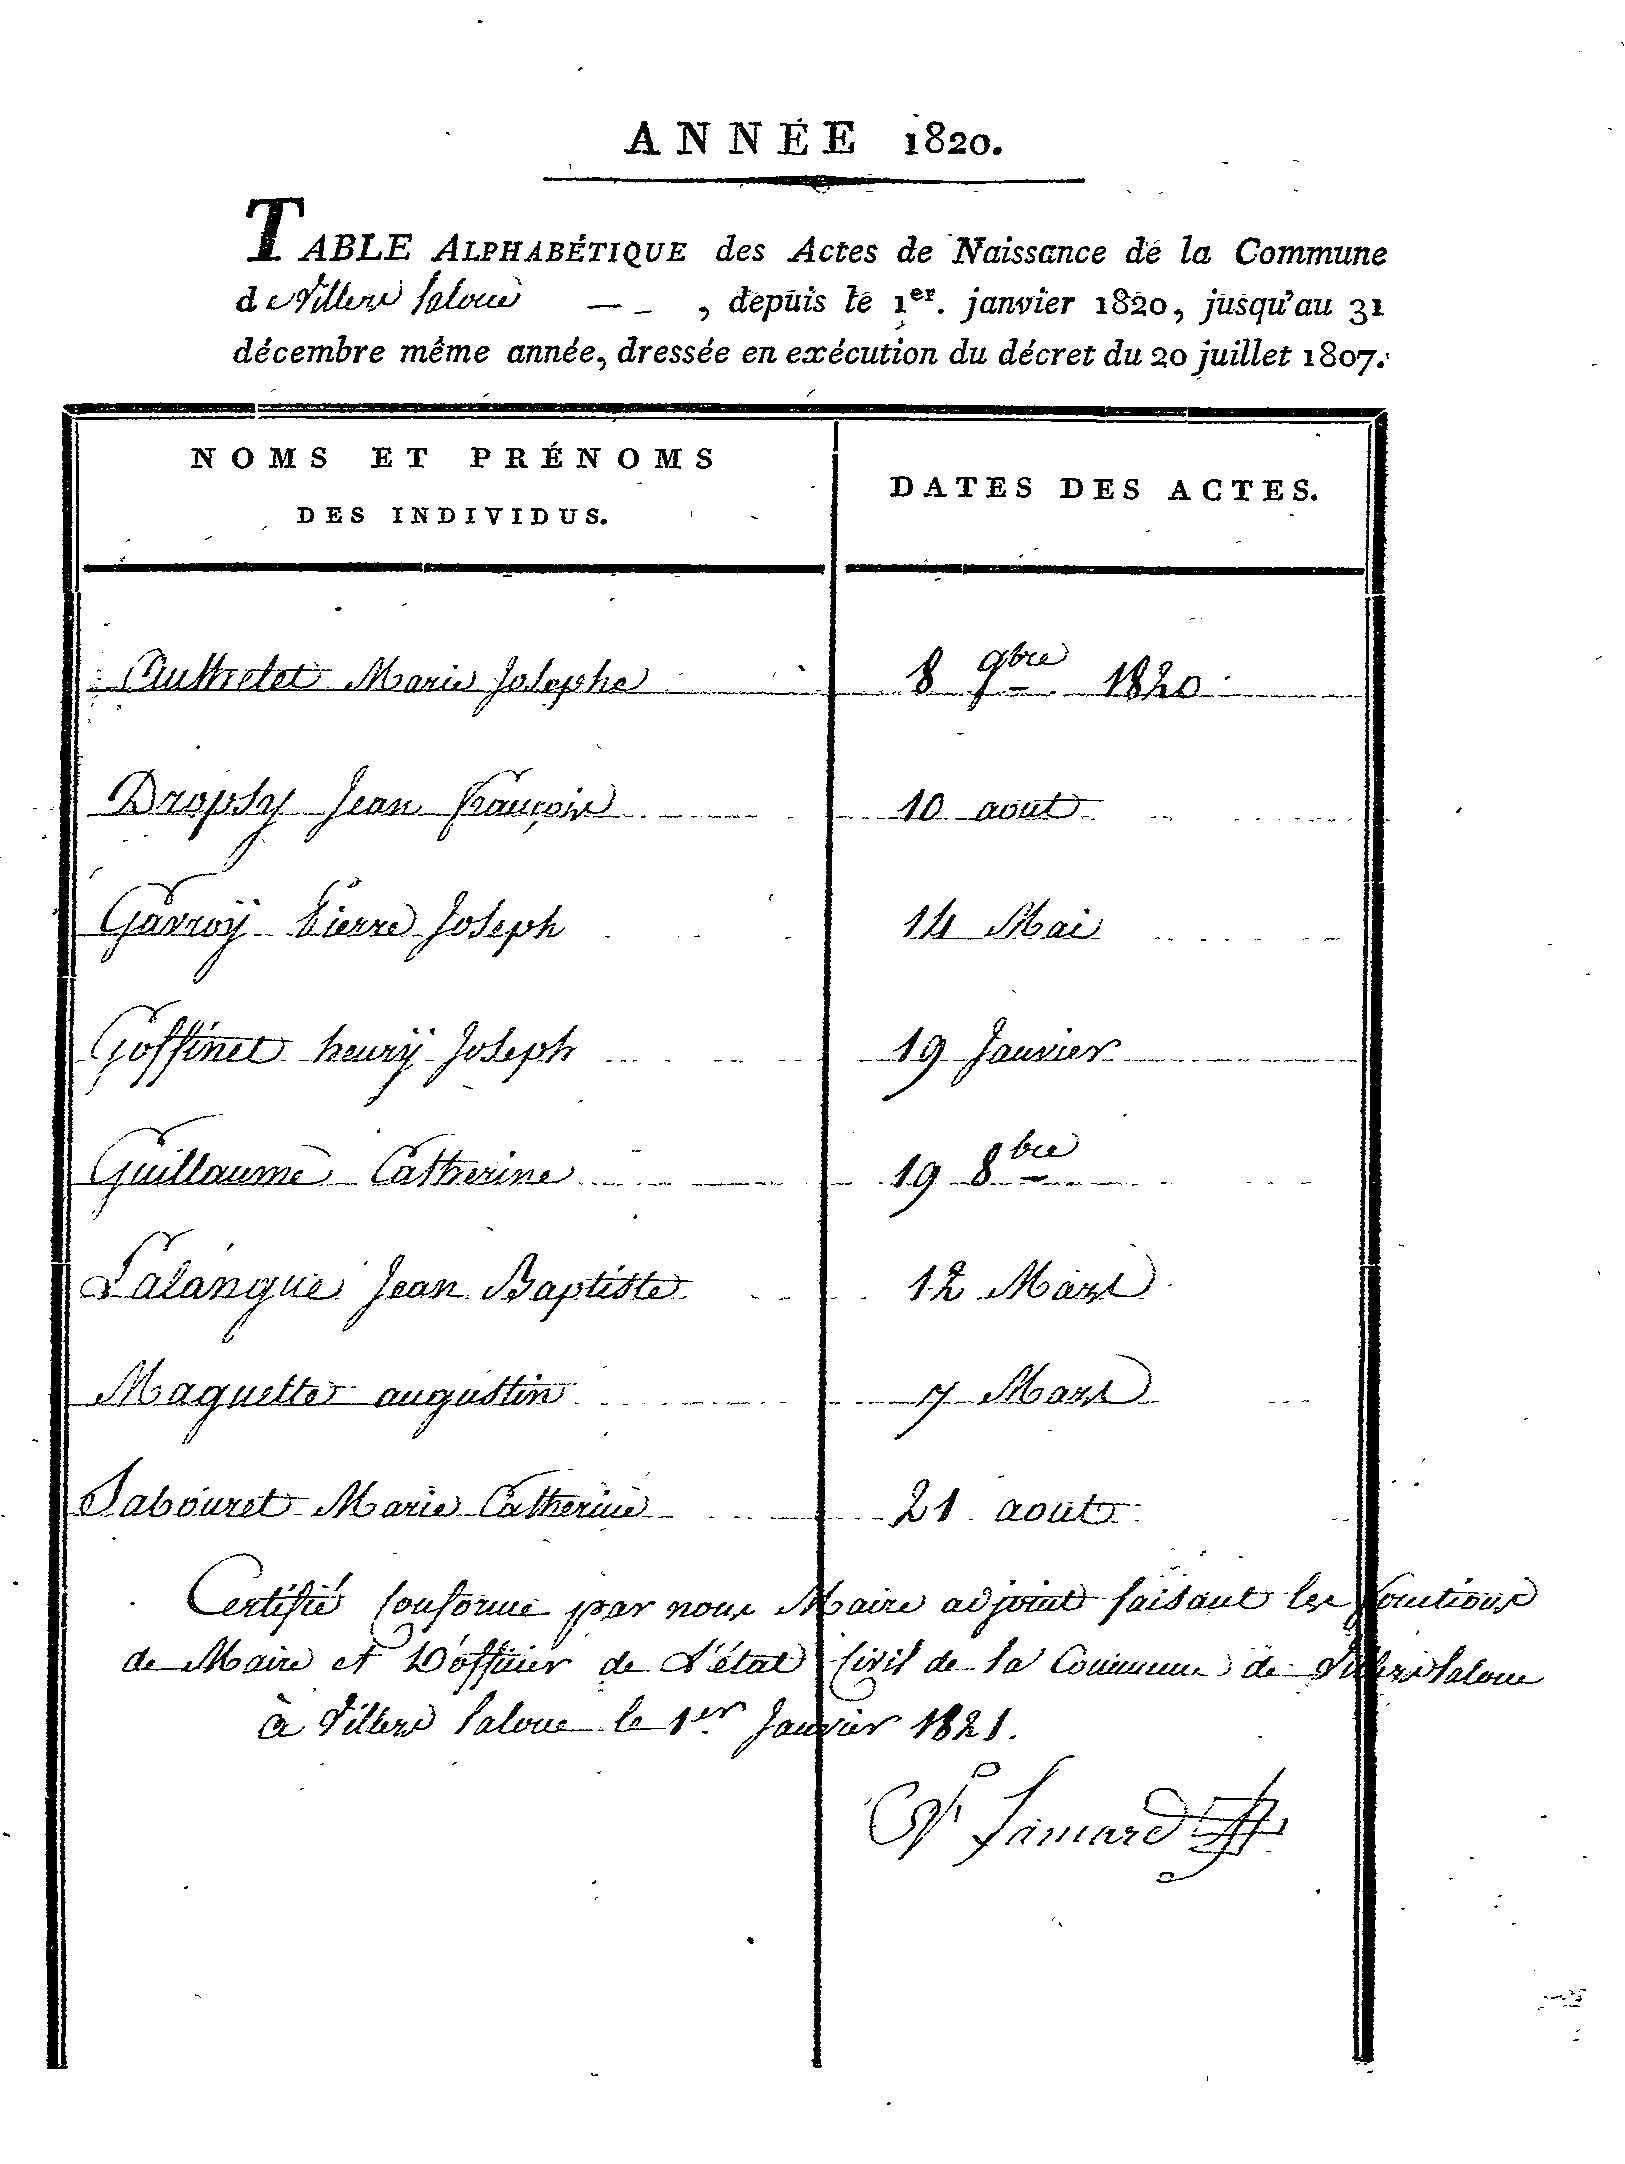 ANNÉE 1820.
TABLE ALPHABÉTIQUE des Actes de Naissance de la Commune
de Villers laloue — – , depuis le 1er. janvier 1820, jusqu'au 31
décembre même année, dressée en exécution du décret du 20 juillet 1807.
NOMS ET PRÉNOMS
DES INDIVIDUS.
DATES DES ACTES.
Authelet Marie Josephe 8 9bre 1820
Dropsy Jean françois 10 aout
Gavroÿ Pierre Joseph 14 Mai
Goffinet henrÿ Joseph 19 Janvier
Guillaume Catherine 19 8bre
Lalangue Jean Baptiste 12 Mars
Maguette augustin 7 Mars
Tabouret Marie Catherine 21 aout
Certifié conforme par nous Maire adjoint faisant les fonctions
de Maire et D'officier de L'état Civil de la Commune de Villers laloue
à Villers laloue le 1er Janvier 1821.